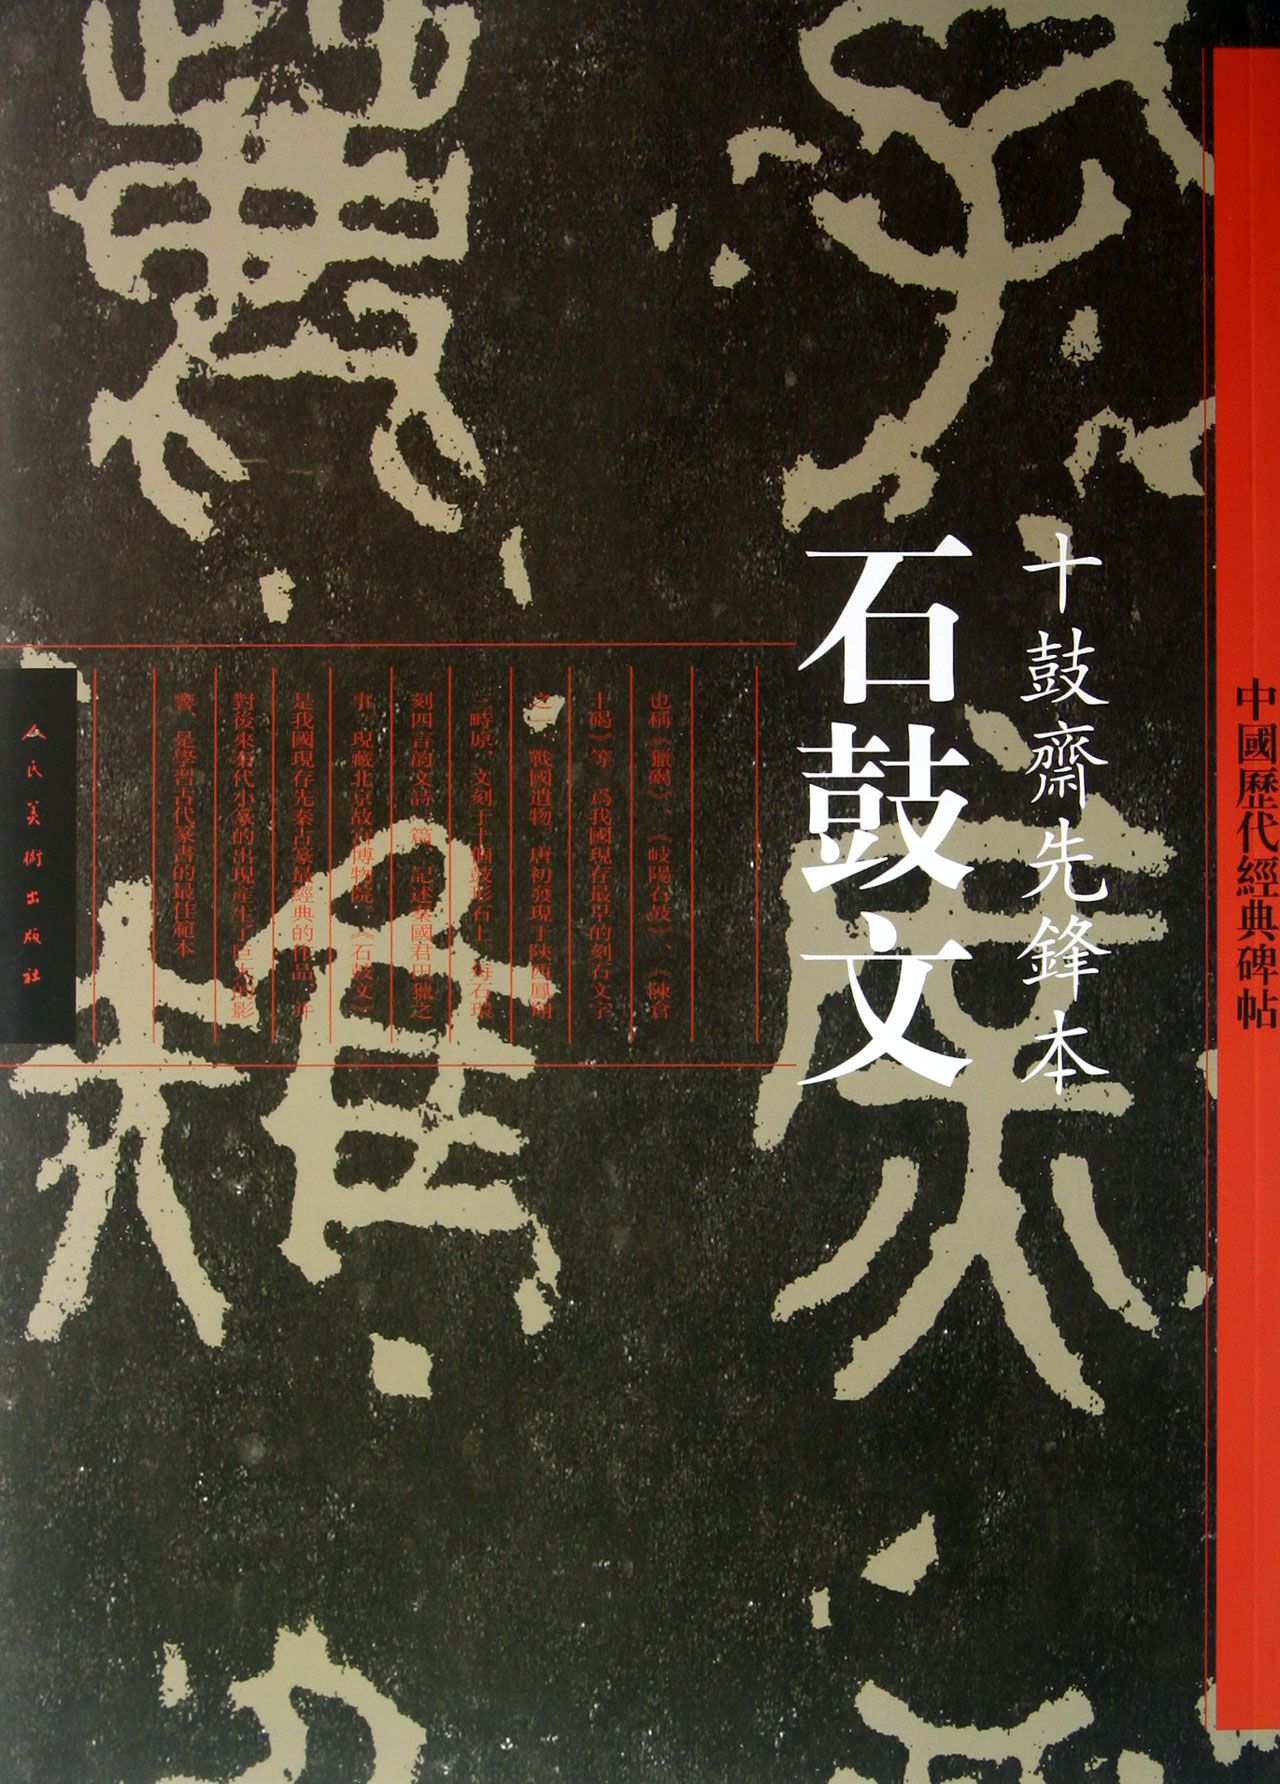 中國歷代經典碑帖
十鼓齋先鋒本
石鼓文
也稱《獵碣》、《岐陽石鼓》、《陳倉
十碣》等，爲我國現存最早的刻石文字
之一，戰國遺物。唐初發現于陝西鳳翔
三畤原，文刻于十個鼓形石上，每石環
刻四言韵文詩一篇，記述秦國君田獵之
事，現藏北京故宮博物院。《石鼓文》
是我國現存先秦古篆最經典的作品，并
對後來秦代小篆的出現産生了巨大的影
響，是學習古代篆書的最佳範本
人民美術出版社